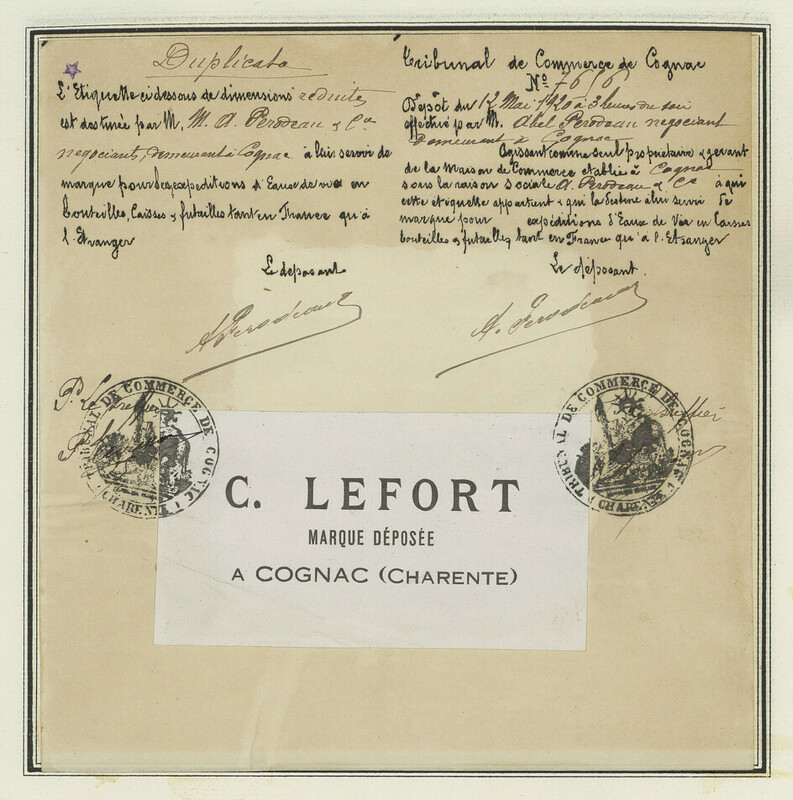 Duplicata
L'Etiquette ci dessous de dimensions reduites
est destinée par M, M. A. Perodeau & Cie
negociants, demeurant à Cognac à lui servir de
marque pour les expeditions d'Eaux de vie en
bouteilles, Caisses & futailles tant en France qu'à
l'Etranger
Le déposant
A Perodeau
Tribunal de Commerce de Cognac
No 7616
Dépôt du 12 Mai 1920 à 3 heures du soir
effectué par M. Abel Perodeau negociant
demeurant à Cognac
Agissant comme seul propriétaire & gérant
de la Maison de Commerce établie à Cognac
sous la raison sociale A. Perodeau & Cie à qui
cette étiquette appartient & qui la destine à lui servir de
marque pour expéditions d'Eaux de Vie en Caisses
bouteilles & futailles, tant en France qu'à l'Etranger
Le déposant.
A. Perodeau
TRIBUNAL DE COMMERCE DE COGNAC
(CHARENTE)
TRIBUNAL DE COMMERCE DE COGNAC
(CHARENTE)
C. LEFORT
MARQUE DÉPOSÉE
A COGNAC (CHARENTE)